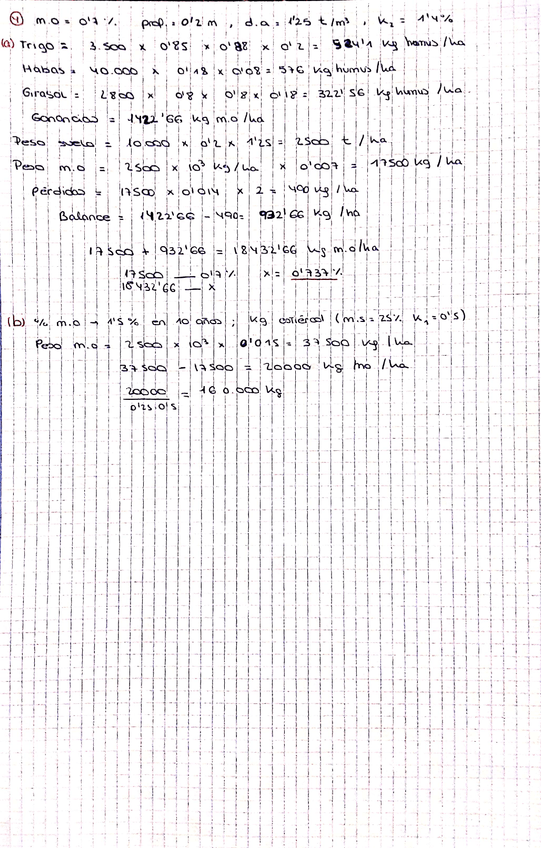 ④ m.o = 0'7 %. prof. = 0'2 m, d.a = 1'25 t/m³, K₂ = 1'4%
(a) Trigo = 3.500 × 0'85 × 0'88 × 0'2 = 524'1 kg humus/ha
Habas = 40.000 × 0'18 × 0'08 = 576 kg humus/ha
Girasol = 2800 × 0'8 × 0'8 × 0'18 = 322'56 kg humus/ha.
Ganancias = 1422'66 kg m.o/ha
Peso suelo = 10.000 × 0'2 × 1'25 = 2500 t/ha
Peso m.o = 2500 × 10³ kg/ha × 0'007 = 17500 kg/ha
Pérdidas = 17500 × 0'014 × 2 = 490 kg/ha
Balance = 1422'66 - 490 = 932'66 kg/ha
17500 + 932'66 = 18432'66 kg m.o/ha
17500 — 0'7% x = 0'737%
18432'66 — x
(b) % m.o → 1'5% en 10 años; kg estiércol (m.s = 25% K₁ = 0'5)
Peso m.o = 2500 × 10³ × 0'015 = 37500 kg/ha
37500 - 17500 = 20000 kg mo/ha
20000 / 0'25·0'5 = 160.000 kg